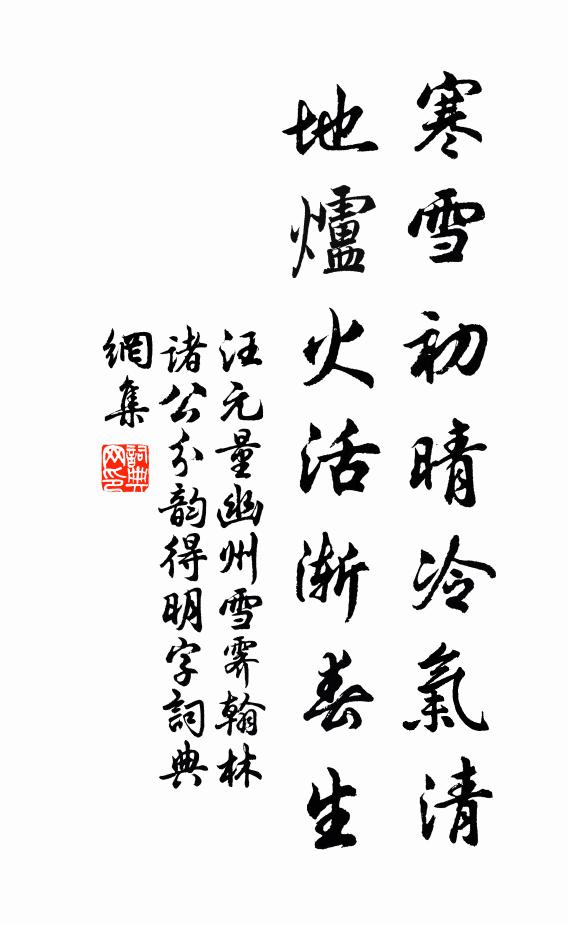 寒雪初晴冷氣清
地爐火活漸春生
汪元量幽州雪霽翰林
諸公分韵得明字詞典
網集
詞典
网印